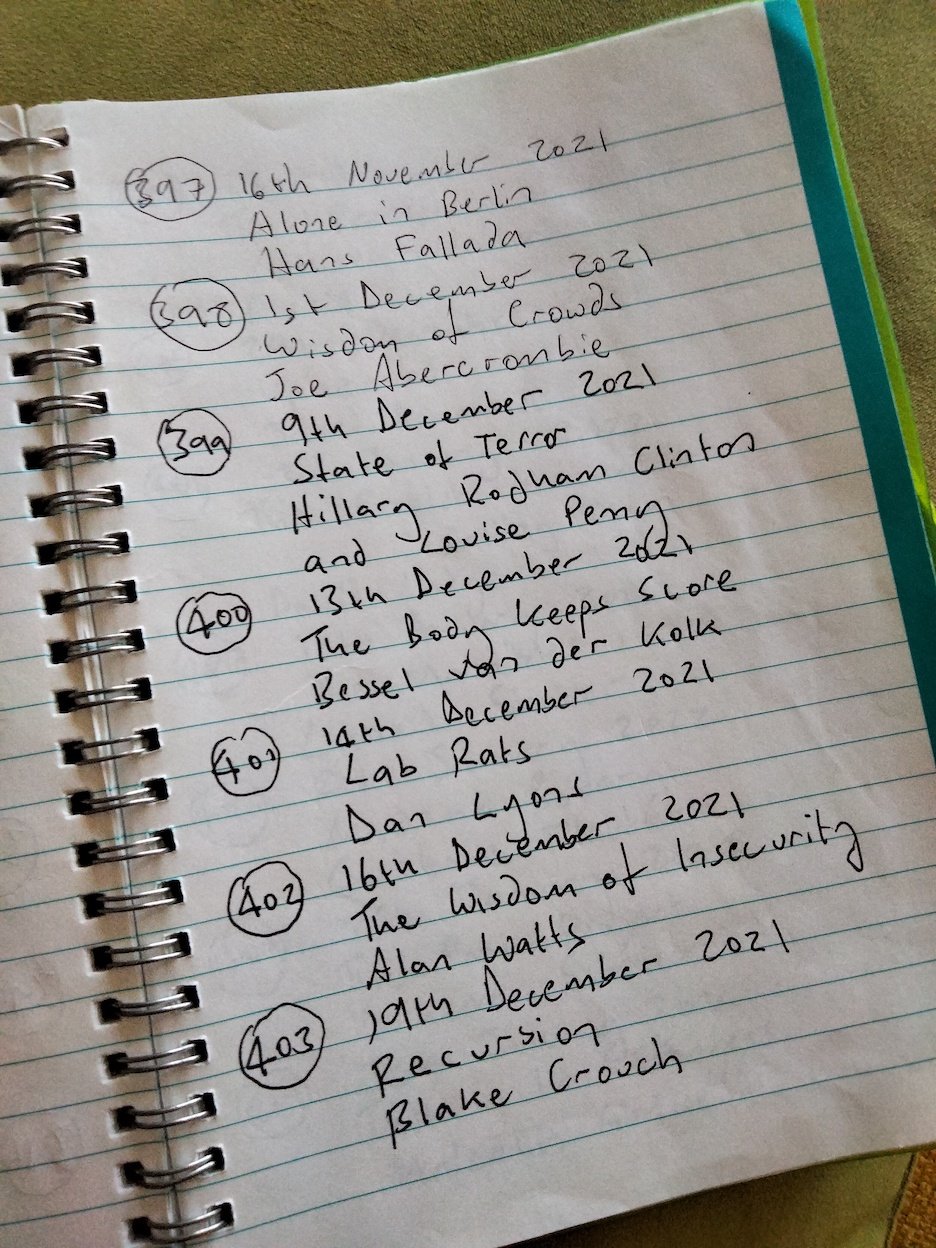 397 16th November 2021
Alone in Berlin
Hans Fallada
398 1st December 2021
Wisdom of Crowds
Joe Abercrombie
399 9th December 2021
State of Terror
Hillary Rodham Clinton
and Louise Penny
400 13th December 2021
The Body Keeps Score
Bessel van der Kolk
401 14th December 2021
Lab Rats
Dan Lyons
402 16th December 2021
The Wisdom of Insecurity
Alan Watts
403 19th December 2021
Recursion
Blake Crouch